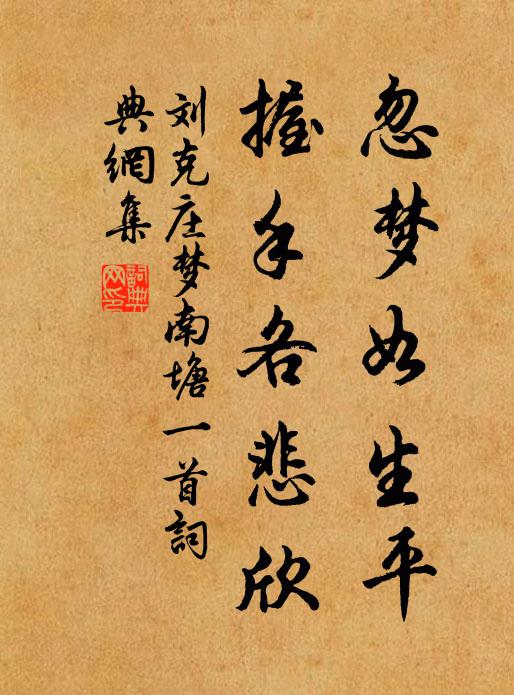 忽梦如生平
握手各悲欣
刘克庄梦南塘一首詞
典網集
詞典网印